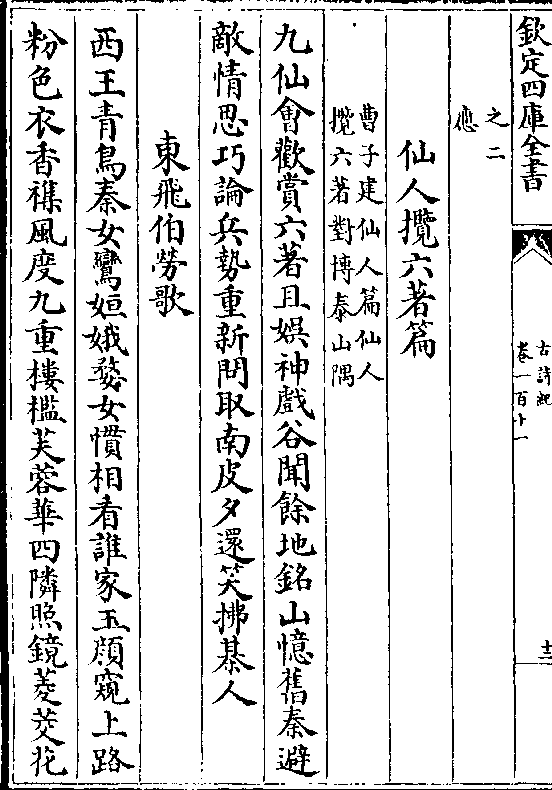 欽定四庫全書
古詩紀
卷一百十一
十二
之二
應
仙人攬六著篇
曹子建仙人篇仙人
攬六著對博泰山隅
九仙會歡賞六著且娛神戲谷聞餘地銘山憶舊秦避
敵情思巧論兵勢重新問取南皮夕還笑拂棊人
東飛伯勞歌
西王青鳥秦女鸞姮娥婺女慣相看誰家玉顔窺上路
粉色衣香襍風度九重樓檻芙蓉華四隣照鏡菱茭花